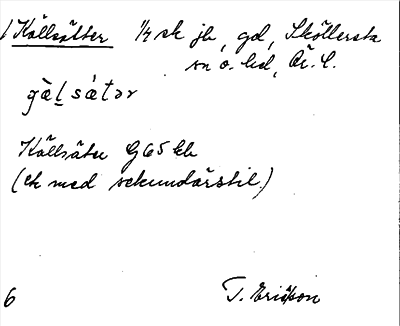 Källsätter 1/4 sk jb, gd, Sköllersta
sn o. hd, Ör. L.
gä̀l̠sátər
Källsäter G 65 kb
(ek med sekundärstil.)
6 T. Ericsson